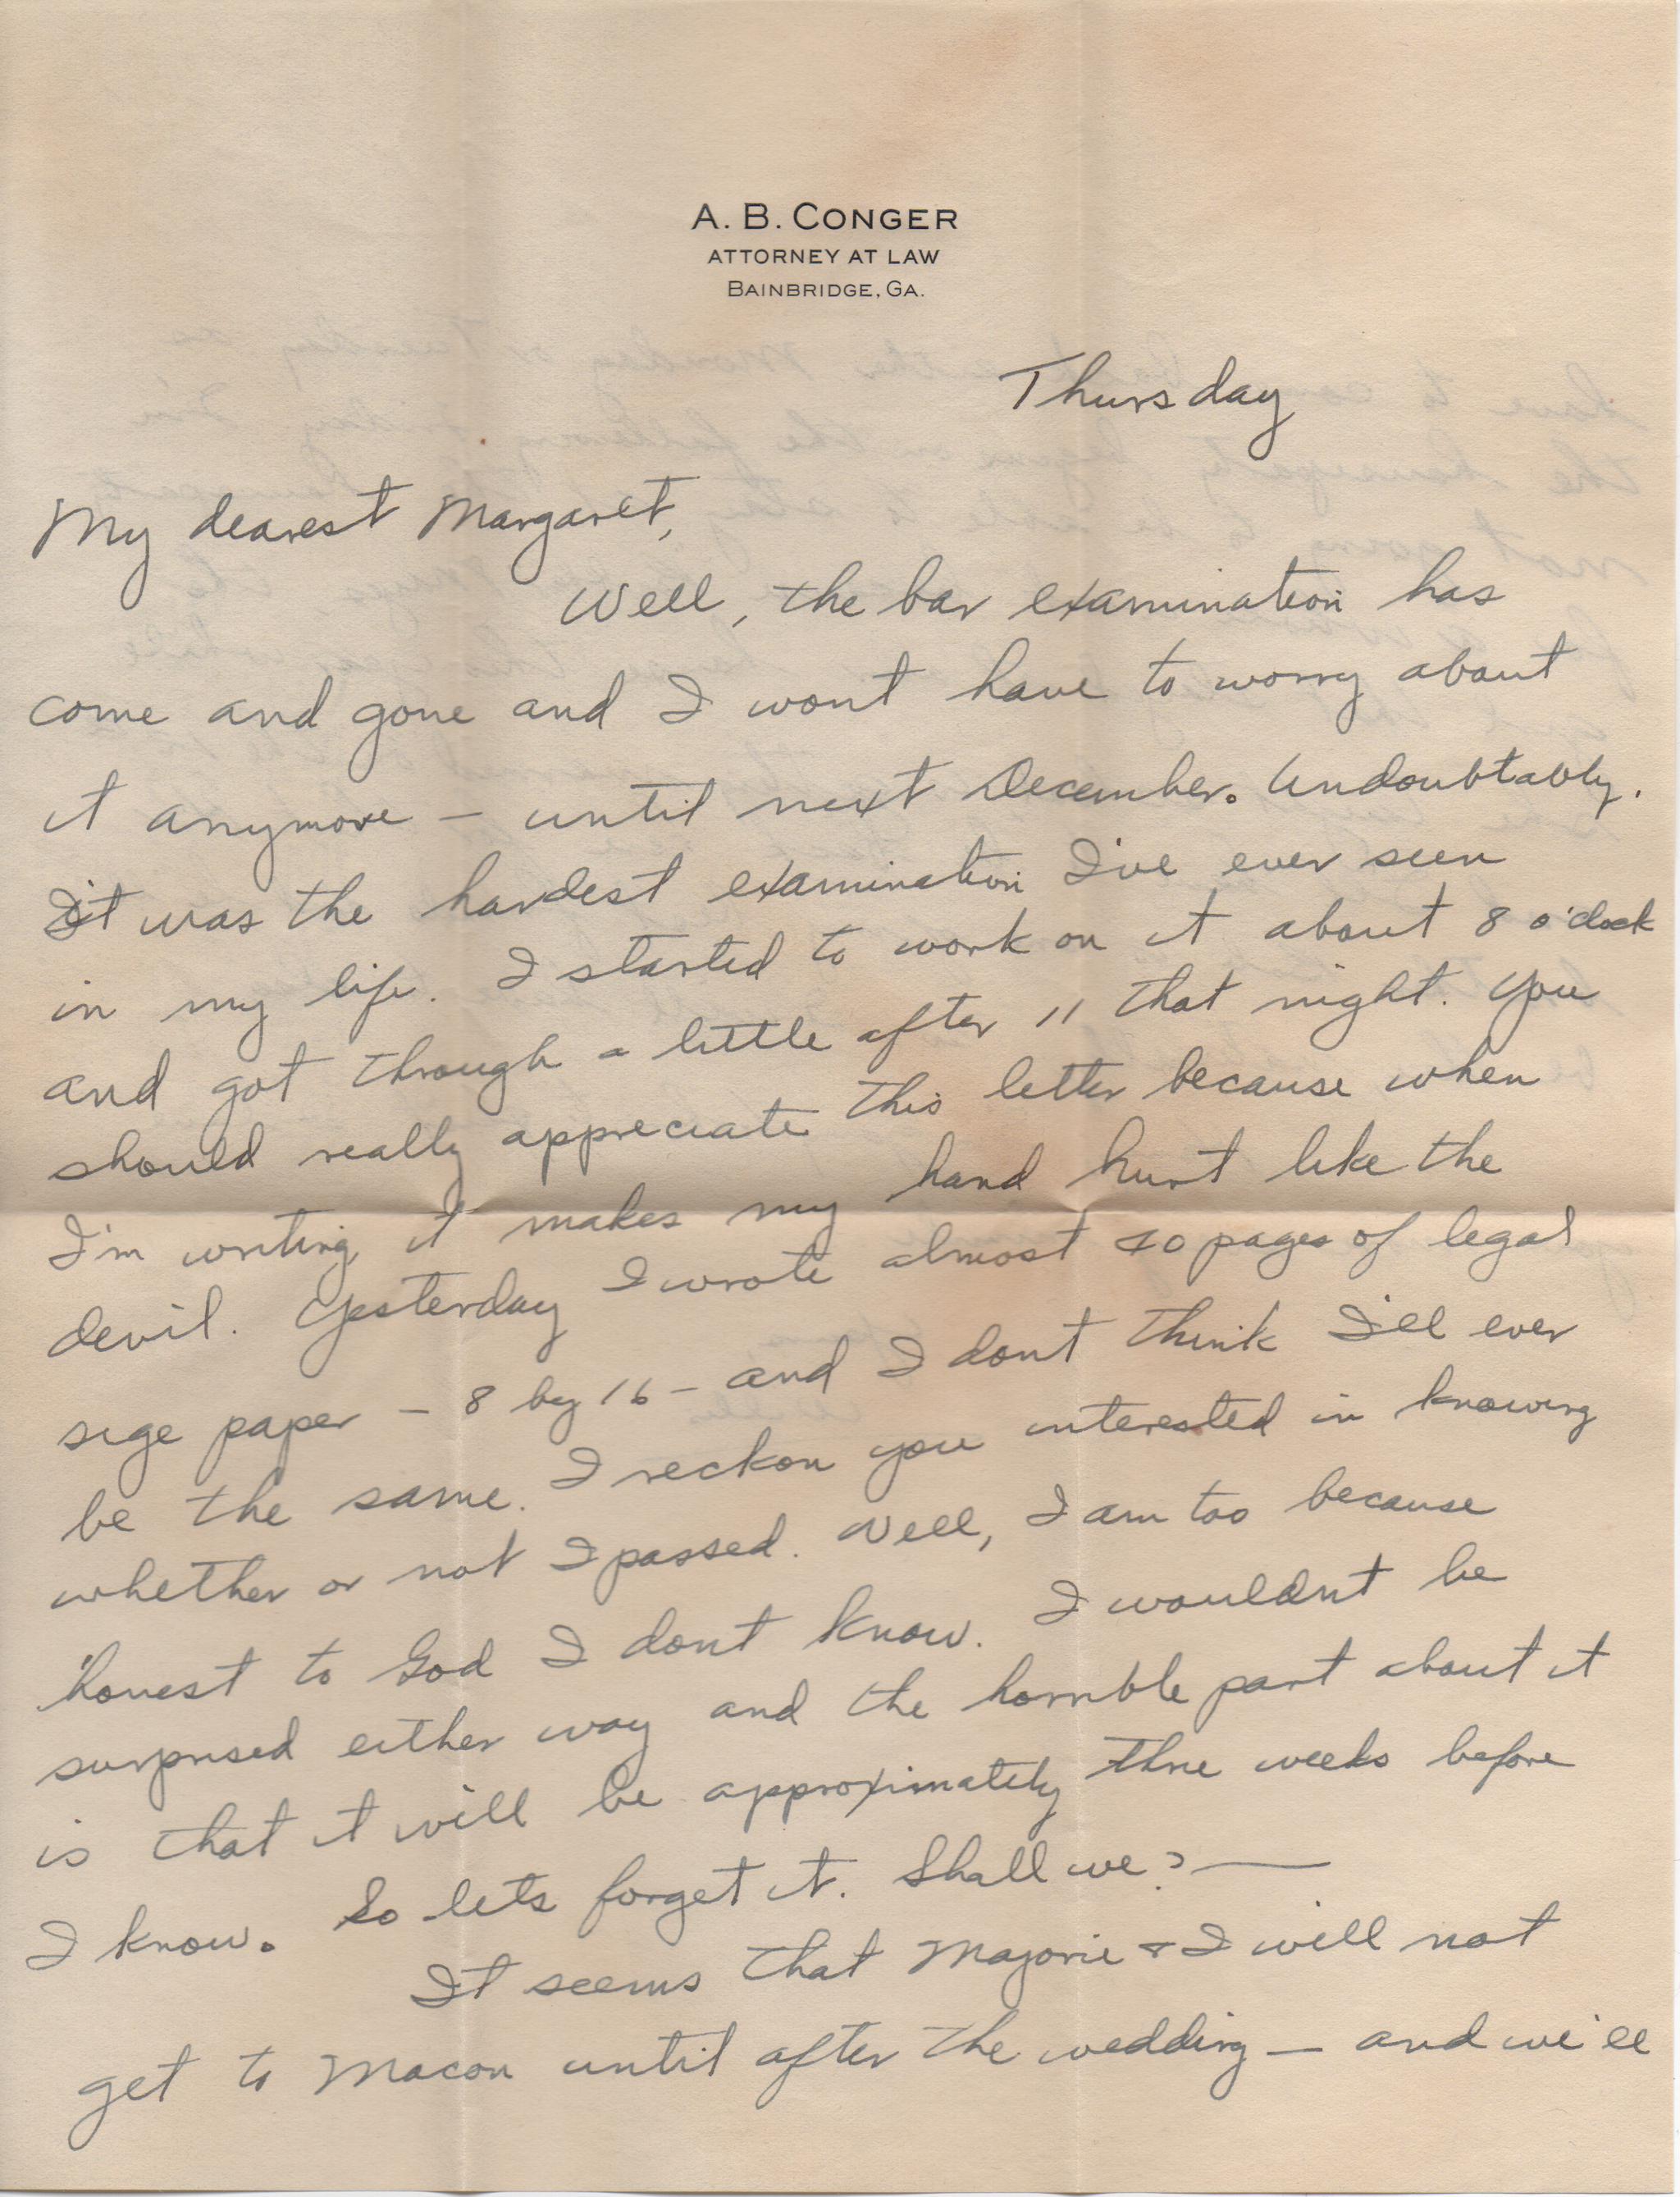 A. B. CONGER
ATTORNEY AT LAW
BAINBRIDGE, GA.
Thursday
My dearest Margaret,
Well, the bar examination has
come and gone and I wont have to worry about
it anymore — until next December. Undoubtably.
It was the hardest examination I've ever seen
in my life. I started to work on it about 8 o'clock
and got through a little after 11 that night. You
should really appreciate this letter because when
I'm writing it makes my hand hurt like the
devil. Yesterday I wrote almost 40 pages of legal
sige paper — 8 by 16 — and I dont think I'll ever
be the same. I reckon you interested in knowing
whether or not I passed. Well, I am too because
honest to God I dont know. I wouldnt be
surprised either way and the horrible part about it
is that it will be approximately three weeks before
I know. So lets forget it. Shall we? —
It seems that Majorie & I will not
get to Macon until after the wedding — and we'll